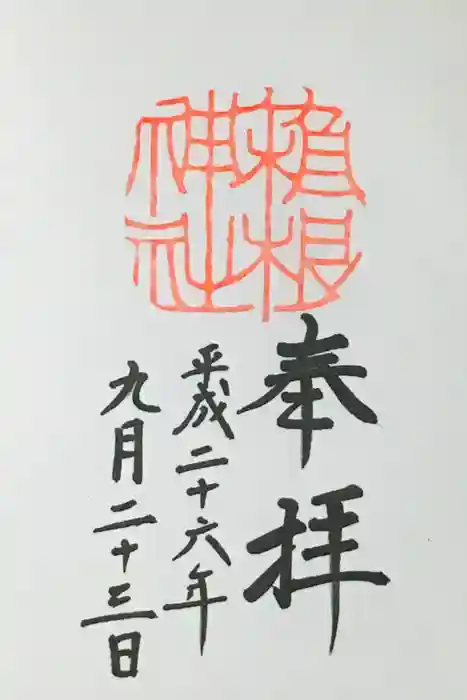 植根
神社
奉拝
平成二十六年
九月二十三日